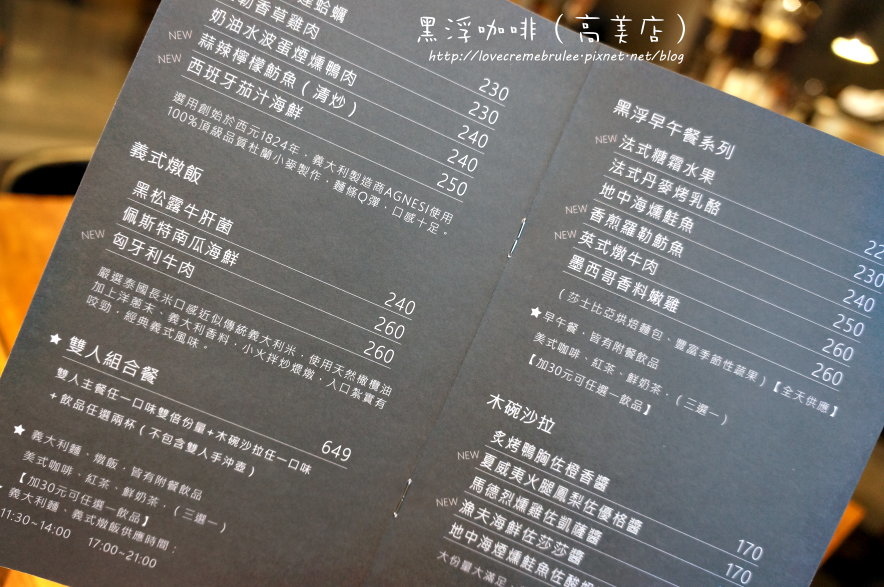 黑浮咖啡（高美店）
http://lovecremebrulee.pixnet.net/blog
蛤蠣
勒香草雞肉 230
奶油水波蛋煙燻鴨肉 230
NEW 蒜辣檸檬魴魚（清炒） 240
NEW 西班牙茄汁海鮮 240
250
選用創始於西元1824年，義大利製造商AGNESI使用
100%頂級品質杜蘭小麥製作，麵條Q彈，口感十足。
義式燉飯
黑松露牛肝菌 240
佩斯特南瓜海鮮 260
NEW 匈牙利牛肉 260
嚴選泰國長米口感近似傳統義大利米，使用天然橄欖油
加上洋蔥末、義大利香料，小火拌炒煨燉，入口紮實有
咬勁，經典義式風味。
★ 雙人組合餐
雙人主餐任一口味雙倍份量+木碗沙拉任一口味 649
+飲品任選兩杯（不包含雙人手沖壺）
★ 義大利麵、燉飯，皆有附餐飲品
美式咖啡、紅茶、鮮奶茶，（三選一）
【加30元可任選一飲品】
義大利麵、義式燉飯供應時間：
11:30~14:00 17:00~21:00
黑浮早午餐系列
NEW 法式糖霜水果 22
法式丹麥烤乳酪 230
地中海燻鮭魚 240
NEW 香煎羅勒魴魚 250
NEW 英式燉牛肉 260
墨西哥香料嫩雞 260
（莎士比亞烘焙麵包、豐富季節性蔬果）【全天供應】
★早午餐，皆有附餐飲品
美式咖啡、紅茶、鮮奶茶，（三選一）
【加30元可任選一飲品】
木碗沙拉
炙烤鴨胸佐橙香醬 170
NEW 夏威夷火腿鳳梨佐優格醬 170
馬德烈燻雞佐凱薩醬
NEW 漁夫海鮮佐莎莎醬
地中海煙燻鮭魚佐酸
大份量大滿足